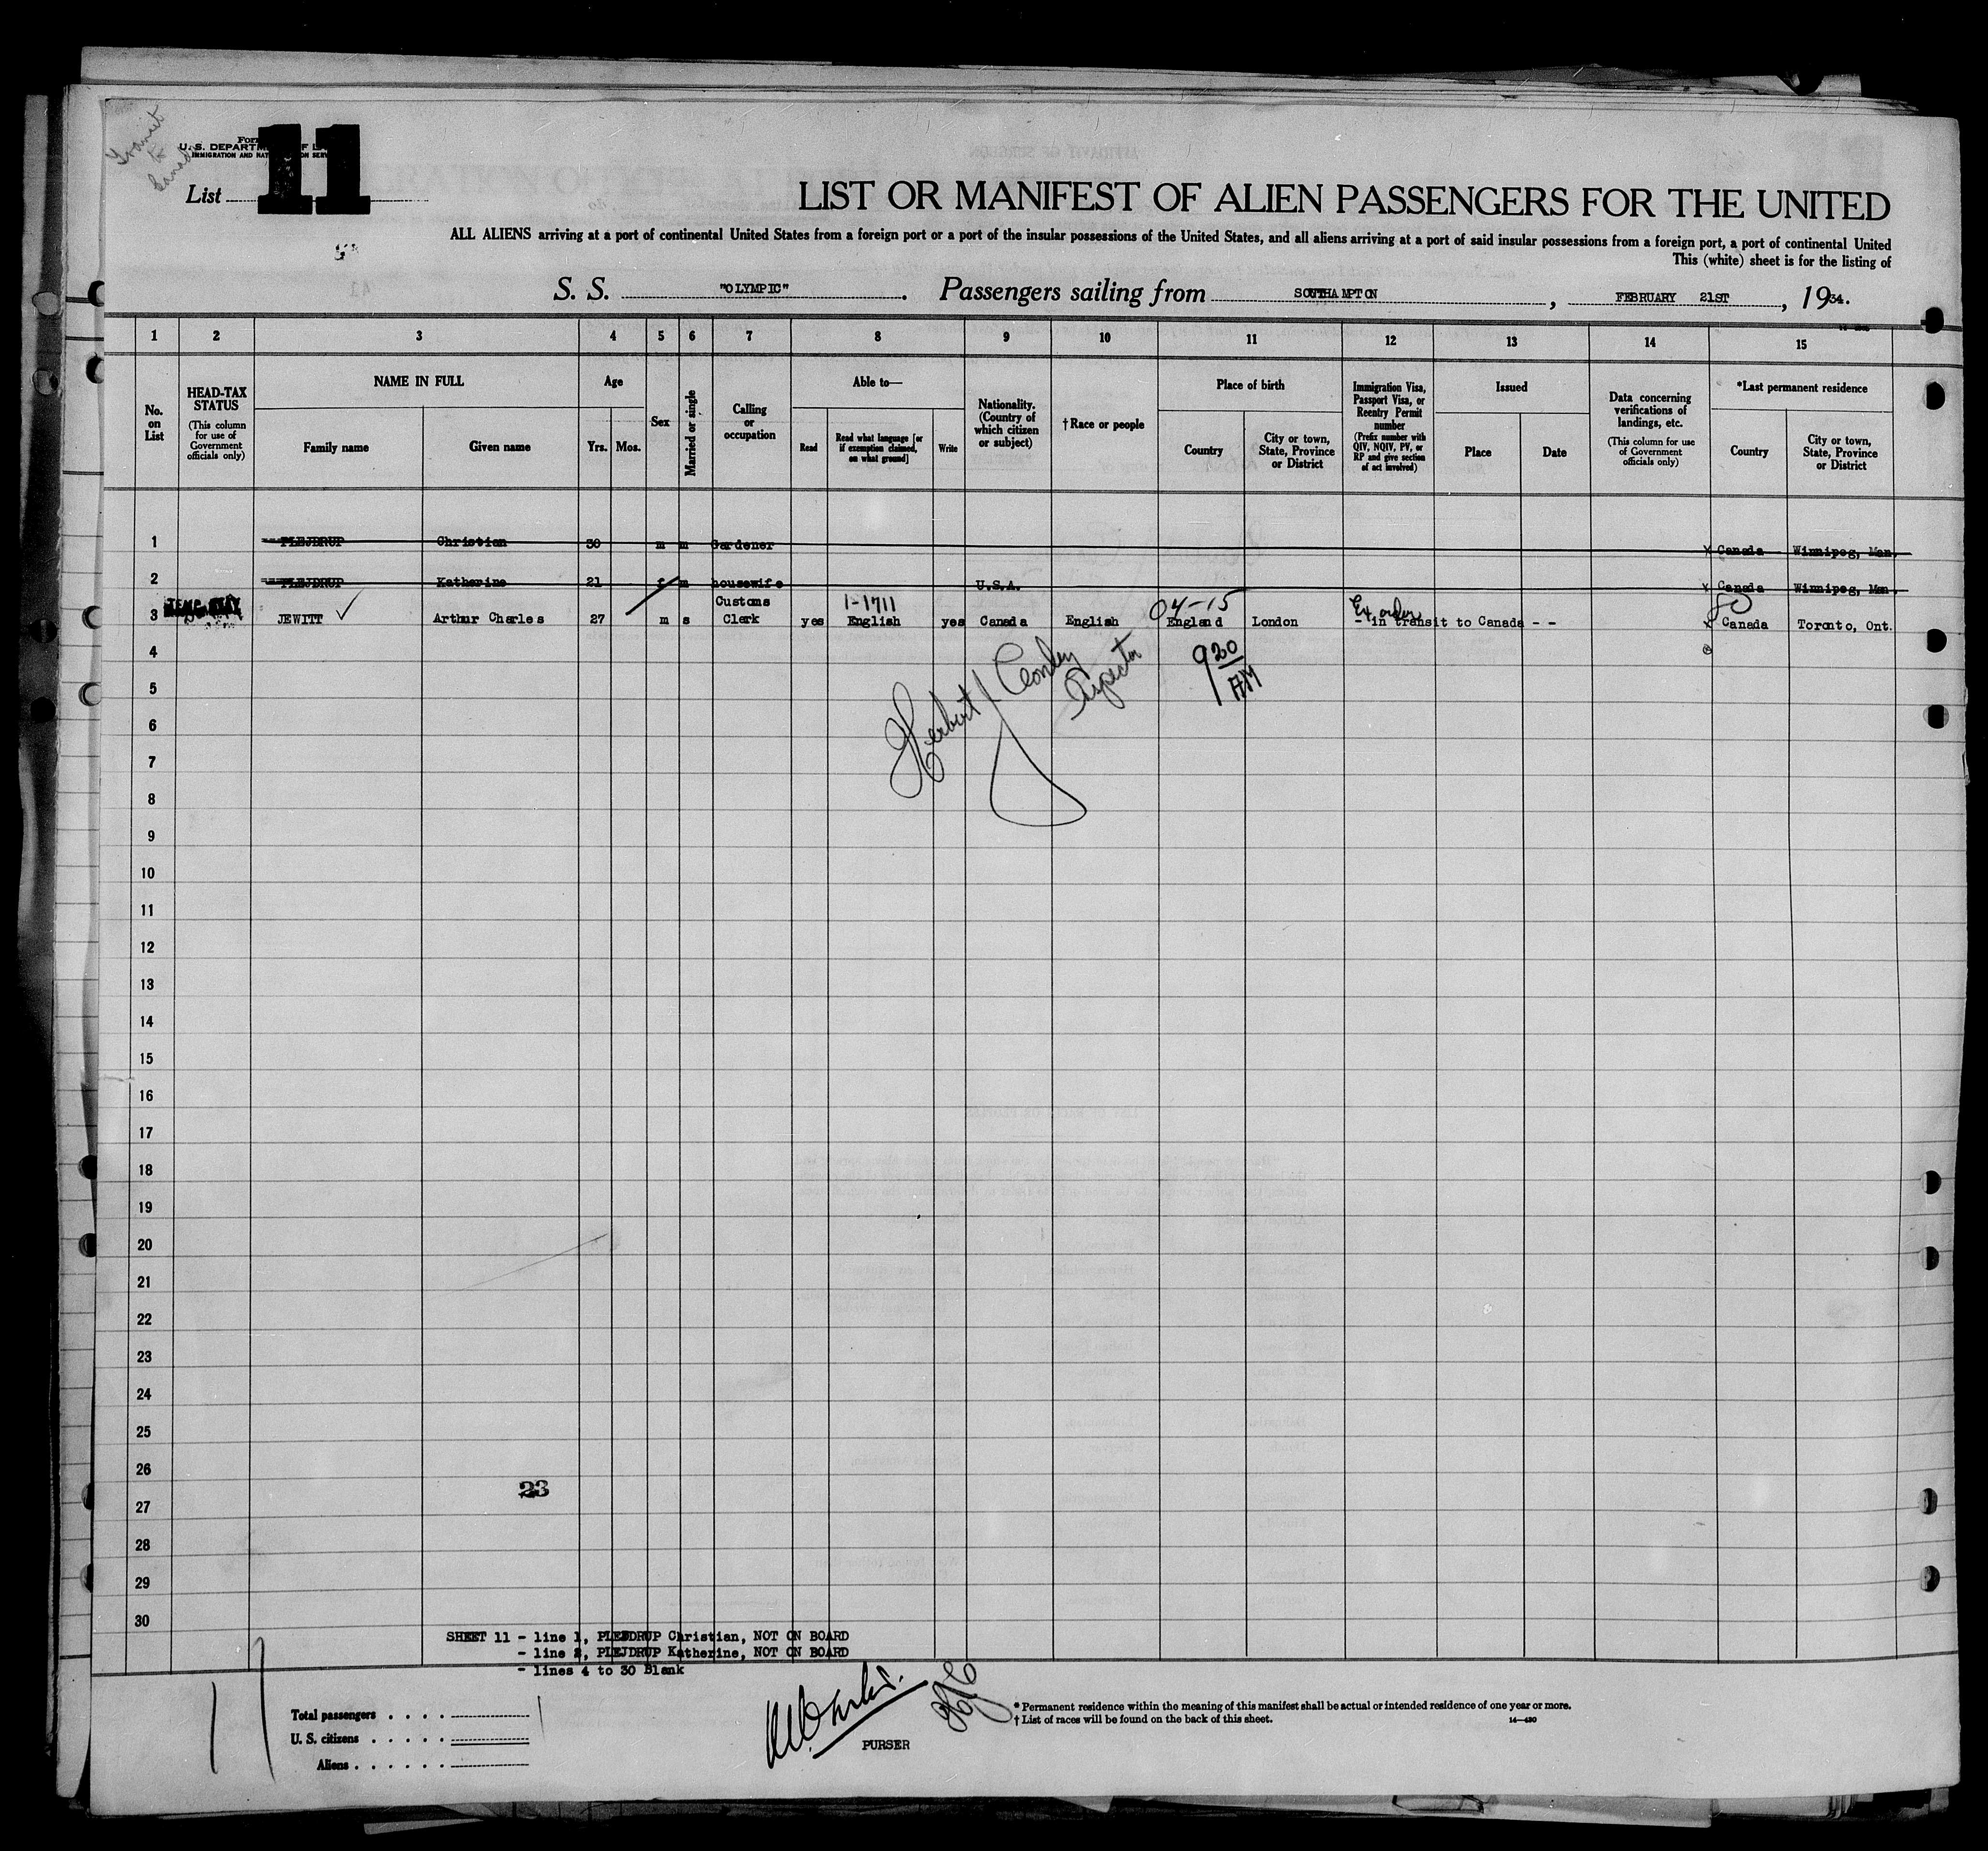 Transit
to
Canada
Form
U. S. DEPARTM F L
IMMIGRATION AND NAT ON SER
List 11
LIST OR MANIFEST OF ALIEN PASSENGERS FOR THE UNITED
ALL ALIENS arriving at a port of continental United States from a foreign port or a port of the insular possessions of the United States, and all aliens arriving at a port of said insular possessions from a foreign port, a port of continental United
This (white) sheet is for the listing of
S. S. "OLYMPIC". Passengers sailing from SOUTHAMPTON, FEBRUARY 21ST, 1934.
1 2 3 4 5 6 7 8 9 10 11 12 13 14 15
No. on List
HEAD-TAX STATUS (This column for use of Government officials only)
NAME IN FULL
Family name
Given name
Age
Yrs. Mos.
Sex
Married or single
Calling or occupation
Able to—
Read
Read what language [or if exemption claimed, on what ground]
Write
Nationality. (Country of which citizen or subject)
†Race or people
Place of birth
Country
City or town, State, Province or District
Immigration Visa, Passport Visa, or Reentry Permit number (Prefix number with QIV, NQIV, PV, or RP and give section of act involved)
Issued
Place
Date
Data concerning verifications of landings, etc. (This column for use of Government officials only)
*Last permanent residence
Country
City or town, State, Province or District
1 PLEJDRUP Christian 30 m m Gardener x Canada Winnipeg, Man.
2 PLEJDRUP Katherine 21 f m housewife U.S.A. x Canada Winnipeg, Man.
Customs 1-1711 04-15 Ex order
3 TEMP. STAY JEWITT ✓ Arthur Charles 27 m s Clerk yes English yes Canada English England London - in transit to Canada - - x Canada Toronto, Ont.
4
Herbert Conley
Inspector
9 20
AM
5
6
7
8
9
10
11
12
13
14
15
16
17
18
19
20
21
22
23
24
25
26
23
27
28
29
30
SHEET 11 - line 1, PLEJDRUP Christian, NOT ON BOARD
- line 2, PLEJDRUP Katherine, NOT ON BOARD
- lines 4 to 30 Blank
Total passengers . . . .
U. S. citizens . . . . .
Aliens . . . . . .
PURSER
* Permanent residence within the meaning of this manifest shall be actual or intended residence of one year or more.
† List of races will be found on the back of this sheet.
14—430